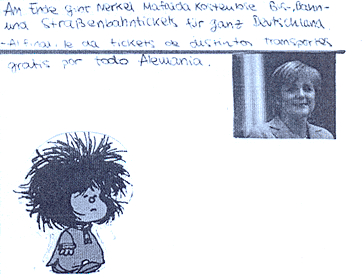 Am Ende gibt Merkel Mafalda kostenlose Bus-, Bahn-
und Straßenbahntickets für ganz Deutschland
-Al final, le da tickets de distintos transportes
gratis por todo Alemania.